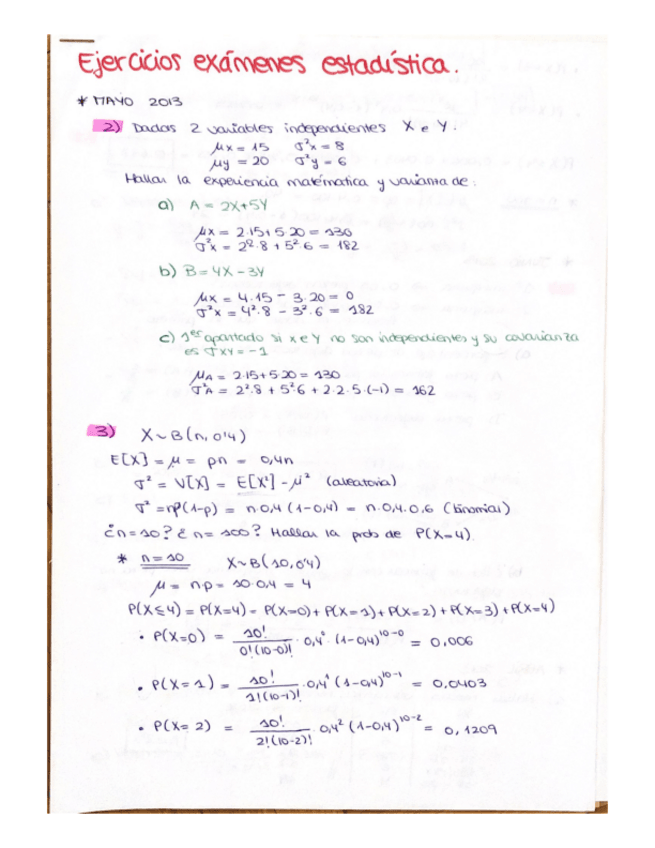 Ejercicios exámenes estadística.
* MAYO 2013
2) Dadas 2 variables independientes X e Y.
μx = 15 σ²x = 8
μy = 20 σ²y = 6
Hallar la experiencia matemática y varianza de:
a) A = 2X+5Y
μx = 2·15+5·20 = 130
σ²x = 2²·8 + 5²·6 = 182
b) B = 4X - 3Y
μx = 4·15 - 3·20 = 0
σ²x = 4²·8 - 3²·6 = 182
c) 1er apartado si x e Y no son independientes y su covarianza
es σxy = -1
μA = 2·15+5·20 = 130
σ²A = 2²·8 + 5²·6 + 2·2·5·(-1) = 162
3) X~B(n, 0'4)
E[X] = μ = pn = 0,4n
σ² = V[X] = E[X²] - μ² (aleatoria)
σ² = np(1-p) = n·0,4 (1-0,4) = n·0,4·0,6 (binomial)
¿n=10? ¿n=100? Hallar la prob de P(X=4)
* n=10 X~B(10,0'4)
μ = np = 10·0,4 = 4
P(X≤4) = P(X=4) = P(X=0) + P(X=1) + P(X=2) + P(X=3) + P(X=4)
• P(X=0) = 10!/0!(10-0)! · 0,4⁰ · (1-0,4)¹⁰⁻⁰ = 0,006
• P(X=1) = 10!/1!(10-1)! · 0,4¹ (1-0,4)¹⁰⁻¹ = 0,0403
• P(X=2) = 10!/2!(10-2)! 0,4² (1-0,4)¹⁰⁻² = 0,1209